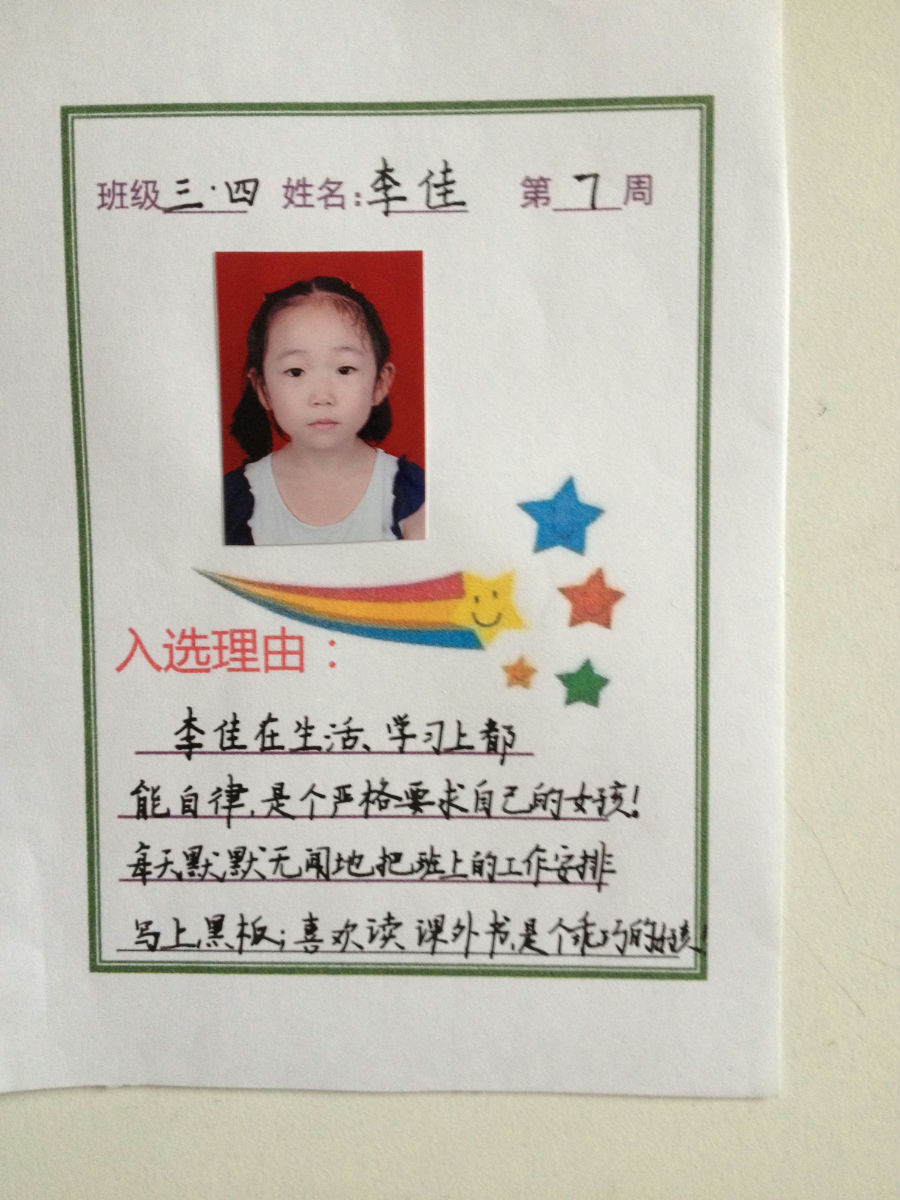 班级三·四 姓名:李佳 第7周
入选理由:
李佳在生活、学习上都
能自律,是个严格要求自己的女孩!
每天默默无闻地把班上的工作安排
写上黑板;喜欢读课外书,是个乖巧的女孩!